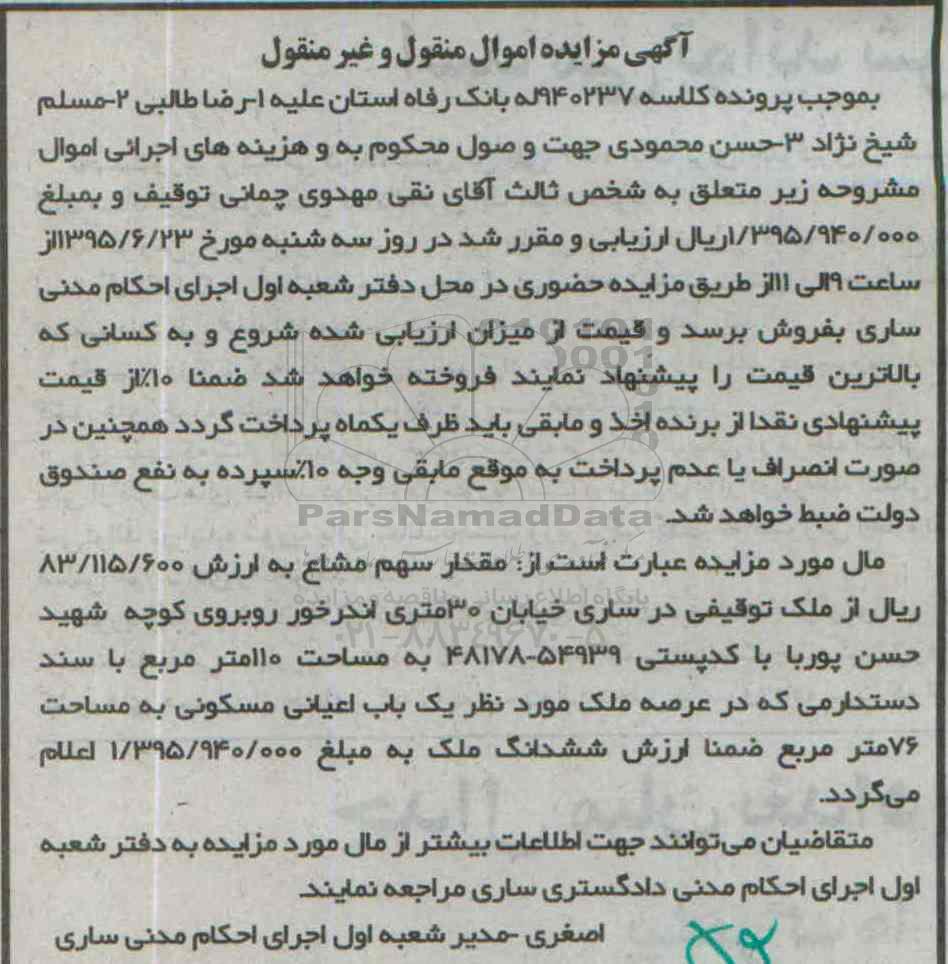 آگهی مزایده اموال منقول و غیر منقول
بموجب پرونده کلاسه ۹۴۰۲۳۷له بانک رفاه استان علیه ۱-رضا طالبی ۲-مسلم
شیخ نژاد ۳-حسن محمودی جهت و صول محکوم به و هزینه های اجرائی اموال
مشروحه زیر متعلق به شخص ثالث آقای نقی مهدوی چمانی توقیف و بمبلغ
۱/۳۹۵/۹۴۰/۰۰۰ریال ارزیابی و مقرر شد در روز سه شنبه مورخ ۱۳۹۵/۶/۲۳از
ساعت ۹الی ۱۱از طریق مزایده حضوری در محل دفتر شعبه اول اجرای احکام مدنی
ساری بفروش برسد و قیمت از میزان ارزیابی شده شروع و به کسانی که
بالاترین قیمت را پیشنهاد نمایند فروخته خواهد شد ضمنا ۱۰٪از قیمت
پیشنهادی نقدا از برنده اخذ و مابقی باید ظرف یکماه پرداخت گردد همچنین در
صورت انصراف یا عدم پرداخت به موقع مابقی وجه ۱۰٪سپرده به نفع صندوق
دولت ضبط خواهد شد.
ParsNamadData
مال مورد مزایده عبارت است از: مقدار سهم مشاع به ارزش ۸۳/۱۱۵/۶۰۰
پایگاه اطلاع رسانی مناقصه و مزایده
ریال از ملک توقیفی در ساری خیابان ۳۰متری اندرخور روبروی کوچه شهید
۰۲۱-۸۸۳۴۹۶۷۰-۵
حسن پوربا با کدپستی ۵۴۹۳۹-۴۸۱۷۸ به مساحت ۱۱۰متر مربع با سند
دستدارمی که در عرصه ملک مورد نظر یک باب اعیانی مسکونی به مساحت
۷۶متر مربع ضمنا ارزش ششدانگ ملک به مبلغ ۱/۳۹۵/۹۴۰/۰۰۰ اعلام
می‌گردد.
متقاضیان می‌توانند جهت اطلاعات بیشتر از مال مورد مزایده به دفتر شعبه
اول اجرای احکام مدنی دادگستری ساری مراجعه نمایند.
اصغری -مدیر شعبه اول اجرای احکام مدنی ساری